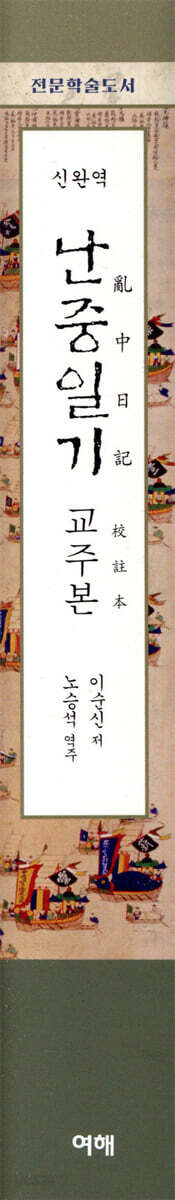 전문학술도서
신완역
난중일기
亂中日記
교주본
校註本
이순신 저
노승석 역주
여해